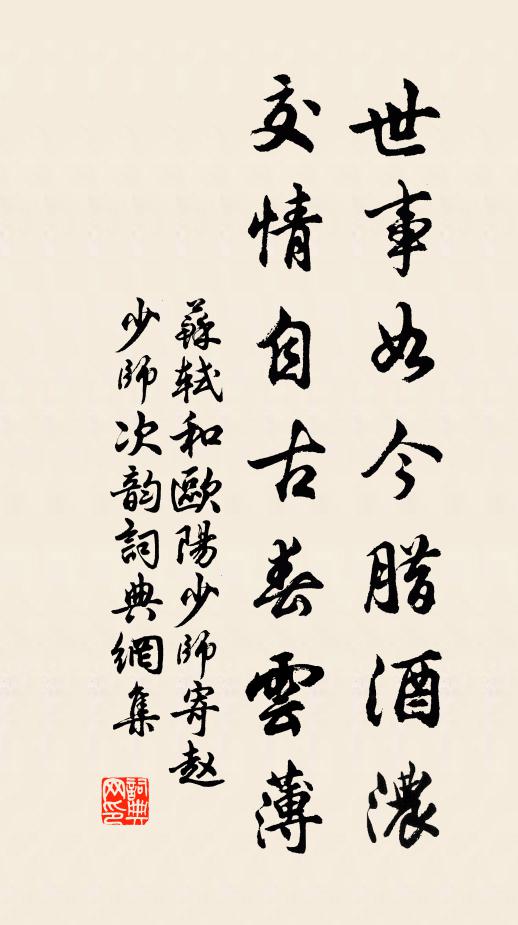 世事如今腊酒濃
交情自古春雲薄
蘇軾和歐陽少師寄赵
少師次韵詞典網集
詞典网印